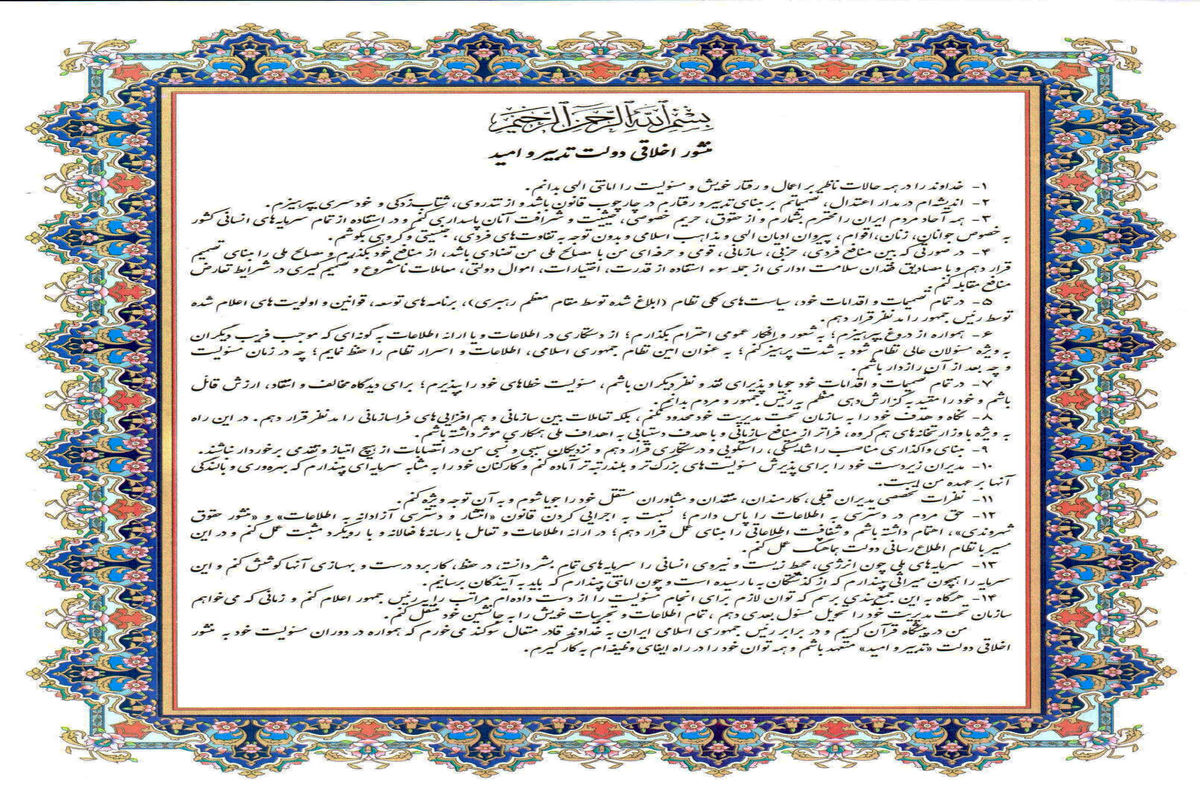 بسم الله الرحمن الرحیم
منشور اخلاقی دولت تدبیر و امید
۱- خداوند را در همه حالات ناظر بر اعمال و رفتار خویش و مسئولیت را امانتی الهی بدانم.
۲- اندیشه‌ام در مدار اعتدال، تصمیماتم بر مبنای تدبیر و رفتارم در چارچوب قانون باشد و از تندروی، شتاب‌زدگی و خودسری بپرهیزم.
۳- همه آحاد مردم ایران را محترم بشمارم و از حقوق، حریم خصوصی، حیثیت و شرافت آنان پاسداری کنم و در استفاده از تمام سرمایه‌های انسانی کشور
به خصوص جوانان، زنان، اقوام، پیروان ادیان الهی و مذاهب اسلامی و بدون توجه به تفاوت‌های فردی، جنسیتی و گروهی بکوشم.
۴- در صورتی که بین منافع فردی، حزبی، سازمانی، قومی و حرفه‌ای من با مصالح ملی من تضادی باشد، از منافع خود بگذرم و مصالح ملی را مبنای تصمیم
قرار دهم و با مصادیق فقدان سلامت اداری از جمله سوء استفاده از قدرت، اختیارات، اموال دولتی، معاملات نامشروع و تصمیم‌گیری در شرایط تعارض
منافع مقابله کنم.
۵- در تمام تصمیمات و اقدامات خود، سیاست‌های کلی نظام (ابلاغ شده توسط مقام معظم رهبری)، برنامه‌های توسعه، قوانین و اولویت‌های اعلام شده
توسط رئیس جمهور را مدنظر قرار دهم.
۶- همواره از دروغ بپرهیزم؛ به شعور و افکار عمومی احترام بگذارم؛ از دستکاری در اطلاعات و یا ارائه اطلاعات به گونه‌ای که موجب فریب دیگران
به ویژه مسئولان عالی نظام شود به شدت پرهیز کنم؛ به عنوان امین نظام جمهوری اسلامی، اطلاعات و اسرار نظام را حفظ نمایم؛ چه در زمان مسئولیت
و چه بعد از آن رازدار باشم.
۷- در تمام تصمیمات و اقدامات خود جویا و پذیرای نقد و نظر دیگران باشم، مسئولیت خطاهای خود را بپذیرم؛ برای دیدگاه مخالف و انتقاد، ارزش قائل
باشم و خود را مقید به گزارش‌دهی منظم به رئیس جمهور و مردم بدانم.
۸- نگاه و هدف خود را به سازمان تحت مدیریت خود محدود نکنم، بلکه تعاملات بین سازمانی و هم‌افزایی‌های فراسازمانی را مدنظر قرار دهم. در این راه
به ویژه با وزارتخانه‌های هم‌گروه، فراتر از منافع سازمانی و با هدف دستیابی به اهداف ملی همکاری موثر داشته باشم.
۹- مبنای واگذاری مناصب را شایستگی، راستگویی و درستکاری قرار دهم و نزدیکان سببی و نسبی من در انتصابات از هیچ امتیاز و تقدمی برخوردار نباشند.
۱۰- مدیران زیردست خود را برای پذیرش مسئولیت‌های بزرگ‌تر و بلندرتبه‌تر آماده کنم و کارکنان خود را به مثابه سرمایه‌ای پندارم که بهره‌وری و بالندگی
آنها بر عهده من است.
۱۱- نظرات تخصصی مدیران قبلی، کارمندان، منتقدان و مشاوران مستقل خود را جویا شوم و به آن توجه ویژه کنم.
۱۲- حق مردم در دسترسی به اطلاعات را پاس دارم؛ نسبت به اجرایی کردن قانون «انتشار و دسترسی آزادانه به اطلاعات» و «منشور حقوق
شهروندی»، اهتمام داشته باشم و شفافیت اطلاعاتی را مبنای عمل قرار دهم؛ در ارائه اطلاعات و تعامل با رسانه‌ها فعالانه و با رویکرد مثبت عمل کنم و در این
مسیر با نظام اطلاع‌رسانی دولت هماهنگ عمل کنم.
۱۳- سرمایه‌های ملی چون انرژی، محیط زیست و نیروی انسانی را سرمایه‌های تمام بشر دانسته، در حفظ، کاربرد درست و بهسازی آنها کوشش کنم و این
سرمایه را همچون میراثی پندارم که از گذشتگان به ما رسیده است و چون امانتی پندارم که باید به آیندگان برسانیم.
۱۴- هرگاه به این جمع‌بندی برسم که توان لازم برای انجام مسئولیت را از دست داده‌ام مراتب را به رئیس جمهور اعلام کنم و زمانی که می‌خواهم
سازمان تحت مدیریت خود را تحویل مسئول بعدی دهم، تمام اطلاعات و تجربیات خویش را به جانشین خود منتقل کنم.
من در پیشگاه قرآن کریم و در برابر رئیس جمهوری اسلامی ایران به خداوند قادر متعال سوگند می‌خورم که همواره در دوران مسئولیت خود به منشور
اخلاقی دولت «تدبیر و امید» متعهد باشم و همه توان خود را در راه ایفای وظیفه‌ام به کار گیرم.